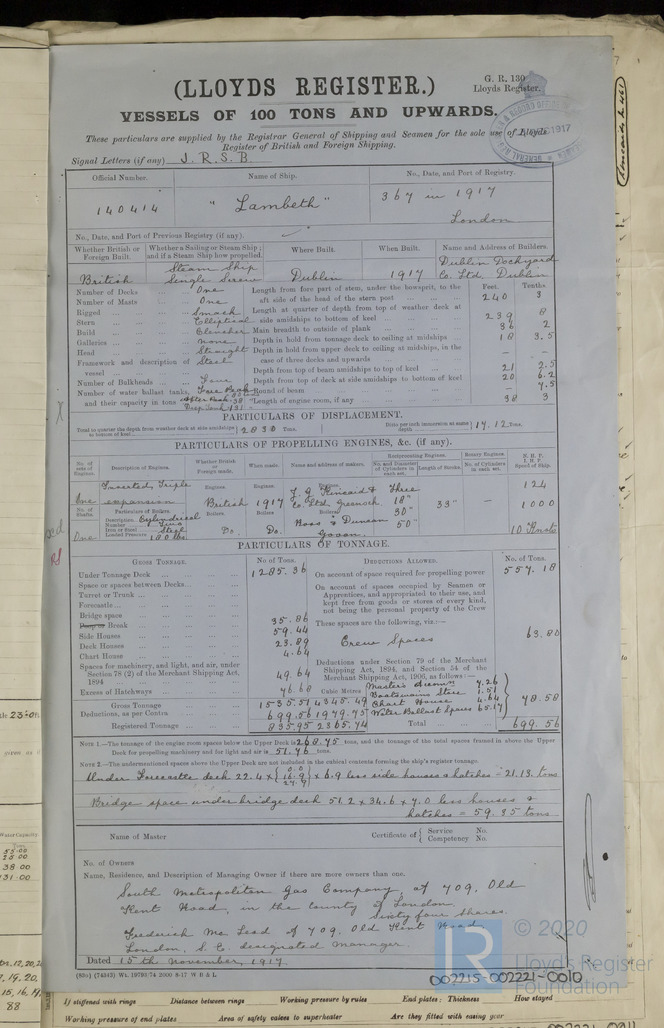 (LLOYDS REGISTER.)
G. R. 130
Lloyds Register.
VESSELS OF 100 TONS AND UPWARDS.
These particulars are supplied by the Registrar General of Shipping and Seamen for the sole use of Lloyds
Register of British and Foreign Shipping.
Signal Letters (if any) J. R. S. B.
Official Number. Name of Ship. No., Date, and Port of Registry.
140414 "Lambeth" 367 in 1917
London
No., Date, and Port of Previous Registry (if any).
Whether British or Foreign Built. Whether a Sailing or Steam Ship; and if a Steam Ship how propelled. Where Built. When Built. Name and Address of Builders.
British Steam Ship Single Screw Dublin 1917 Dublin Dockyard Co. Ltd. Dublin
Number of Decks One Length from fore part of stem, under the bowsprit, to the aft side of the head of the stern post Feet. 240 Tenths. 3
Number of Masts One
Rigged Smack Length at quarter of depth from top of weather deck at side amidships to bottom of keel 239 8
Stern Elliptical
Build Clencher Main breadth to outside of plank 36 2
Galleries none Depth in hold from tonnage deck to ceiling at midships 18 3.5
Head Straight Depth in hold from upper deck to ceiling at midships, in the case of three decks and upwards – –
Framework and description of vessel Steel
Depth from top of beam amidships to top of keel 21 2.5
Number of Bulkheads Four Depth from top of deck at side amidships to bottom of keel 20 6.2
Number of water ballast tanks, and their capacity in tons Fore Peak After Peak 38 Deep Tank 131 Round of beam 7.5
Length of engine room, if any 38 3
PARTICULARS OF DISPLACEMENT.
Total to quarter the depth from weather deck at side amidships to bottom of keel 2830 Tons. Ditto per inch immersion at same depth 17.12 Tons.
PARTICULARS OF PROPELLING ENGINES, &c. (if any).
No. of sets of Engines. Description of Engines. Whether British or Foreign made. When made. Name and address of makers. Reciprocating Engines. Rotary Engines. N.H.P. I.H.P. Speed of Ship.
No. and Diameter of Cylinders in each set. Length of Stroke. No. of Cylinders in each set.
One Inverted Triple expansion Engines. British Engines. 1917 Engines. J. G. Kincaid & Co. Ltd. Greenock Three 18" 30" 50" 33" – 124
1000
No. of Shafts. Particulars of Boilers.
One Description Cylindrical
Iron or Steel Steel
Loaded Pressure 180 lbs. Boilers Do. Boilers Do. Boilers Ross & Duncan Govan 10 Knots
PARTICULARS OF TONNAGE.
GROSS TONNAGE. No. of Tons. DEDUCTIONS ALLOWED. No. of Tons.
Under Tonnage Deck 1285.36 On account of space required for propelling power 557.18
Space or spaces between Decks On account of spaces occupied by Seamen or
Turret or Trunk Apprentices, and appropriated to their use, and
Forecastle kept free from goods or stores of every kind,
Bridge space not being the personal property of the Crew
Poop or Break 35.86 These spaces are the following, viz.:—
Side Houses 59.44
Deck Houses 23.89 Crew Spaces 63.80
Chart House 4.64
Spaces for machinery, and light, and air, under Section 78 (2) of the Merchant Shipping Act, 1894 49.64
Deductions under Section 79 of the Merchant Shipping Act, 1894, and Section 54 of the Merchant Shipping Act, 1906, as follows:—
Excess of Hatchways 76.68 Cubic Metres Master's 7.26
Boatswains Store 1.51
Gross Tonnage 1535.51 4345.49 Chart House 4.64
Deductions, as per Contra 699.56 1979.75 Water Ballast Spaces 65.17 78.58
Registered Tonnage 835.95 2365.74 Total 699.56
NOTE 1.—The tonnage of the engine room spaces below the Upper Deck is 268.75 tons, and the tonnage of the total spaces framed in above the Upper
Deck for propelling machinery and for light and air is 51.76 tons.
NOTE 2.—The undermentioned spaces above the Upper Deck are not included in the cubical contents forming the ship's register tonnage:
Under Forecastle deck 22.4 x 0.0 16.9 27.9 x 6.9 less side houses & hatches = 21.13 tons
Bridge space under bridge deck 51.2 x 34.6 x 7.0 less houses &
hatches = 59.35 tons.
Name of Master Certificate of Service No.
Competency No.
No. of Owners
Name, Residence, and Description of Managing Owner if there are more owners than one.
South Metropolitan Gas Company, of 709, Old
Kent Road, in the County of London.
Sixty four Shares.
Frederick Mc Leod of 709, Old Kent Road
London, S. E. designated manager.
Dated 15th November, 1917.
(83o) (74343) Wt. 19793/74 2000 8-17 W B & L
© 2020
Lloyd's Register
Foundation
002215-002221-0010
If stiffened with rings Distance between rings Working pressure by rules End plates: Thickness How stayed
Working pressure of end plates Area of safety valves to superheater Are they fitted with easing gear